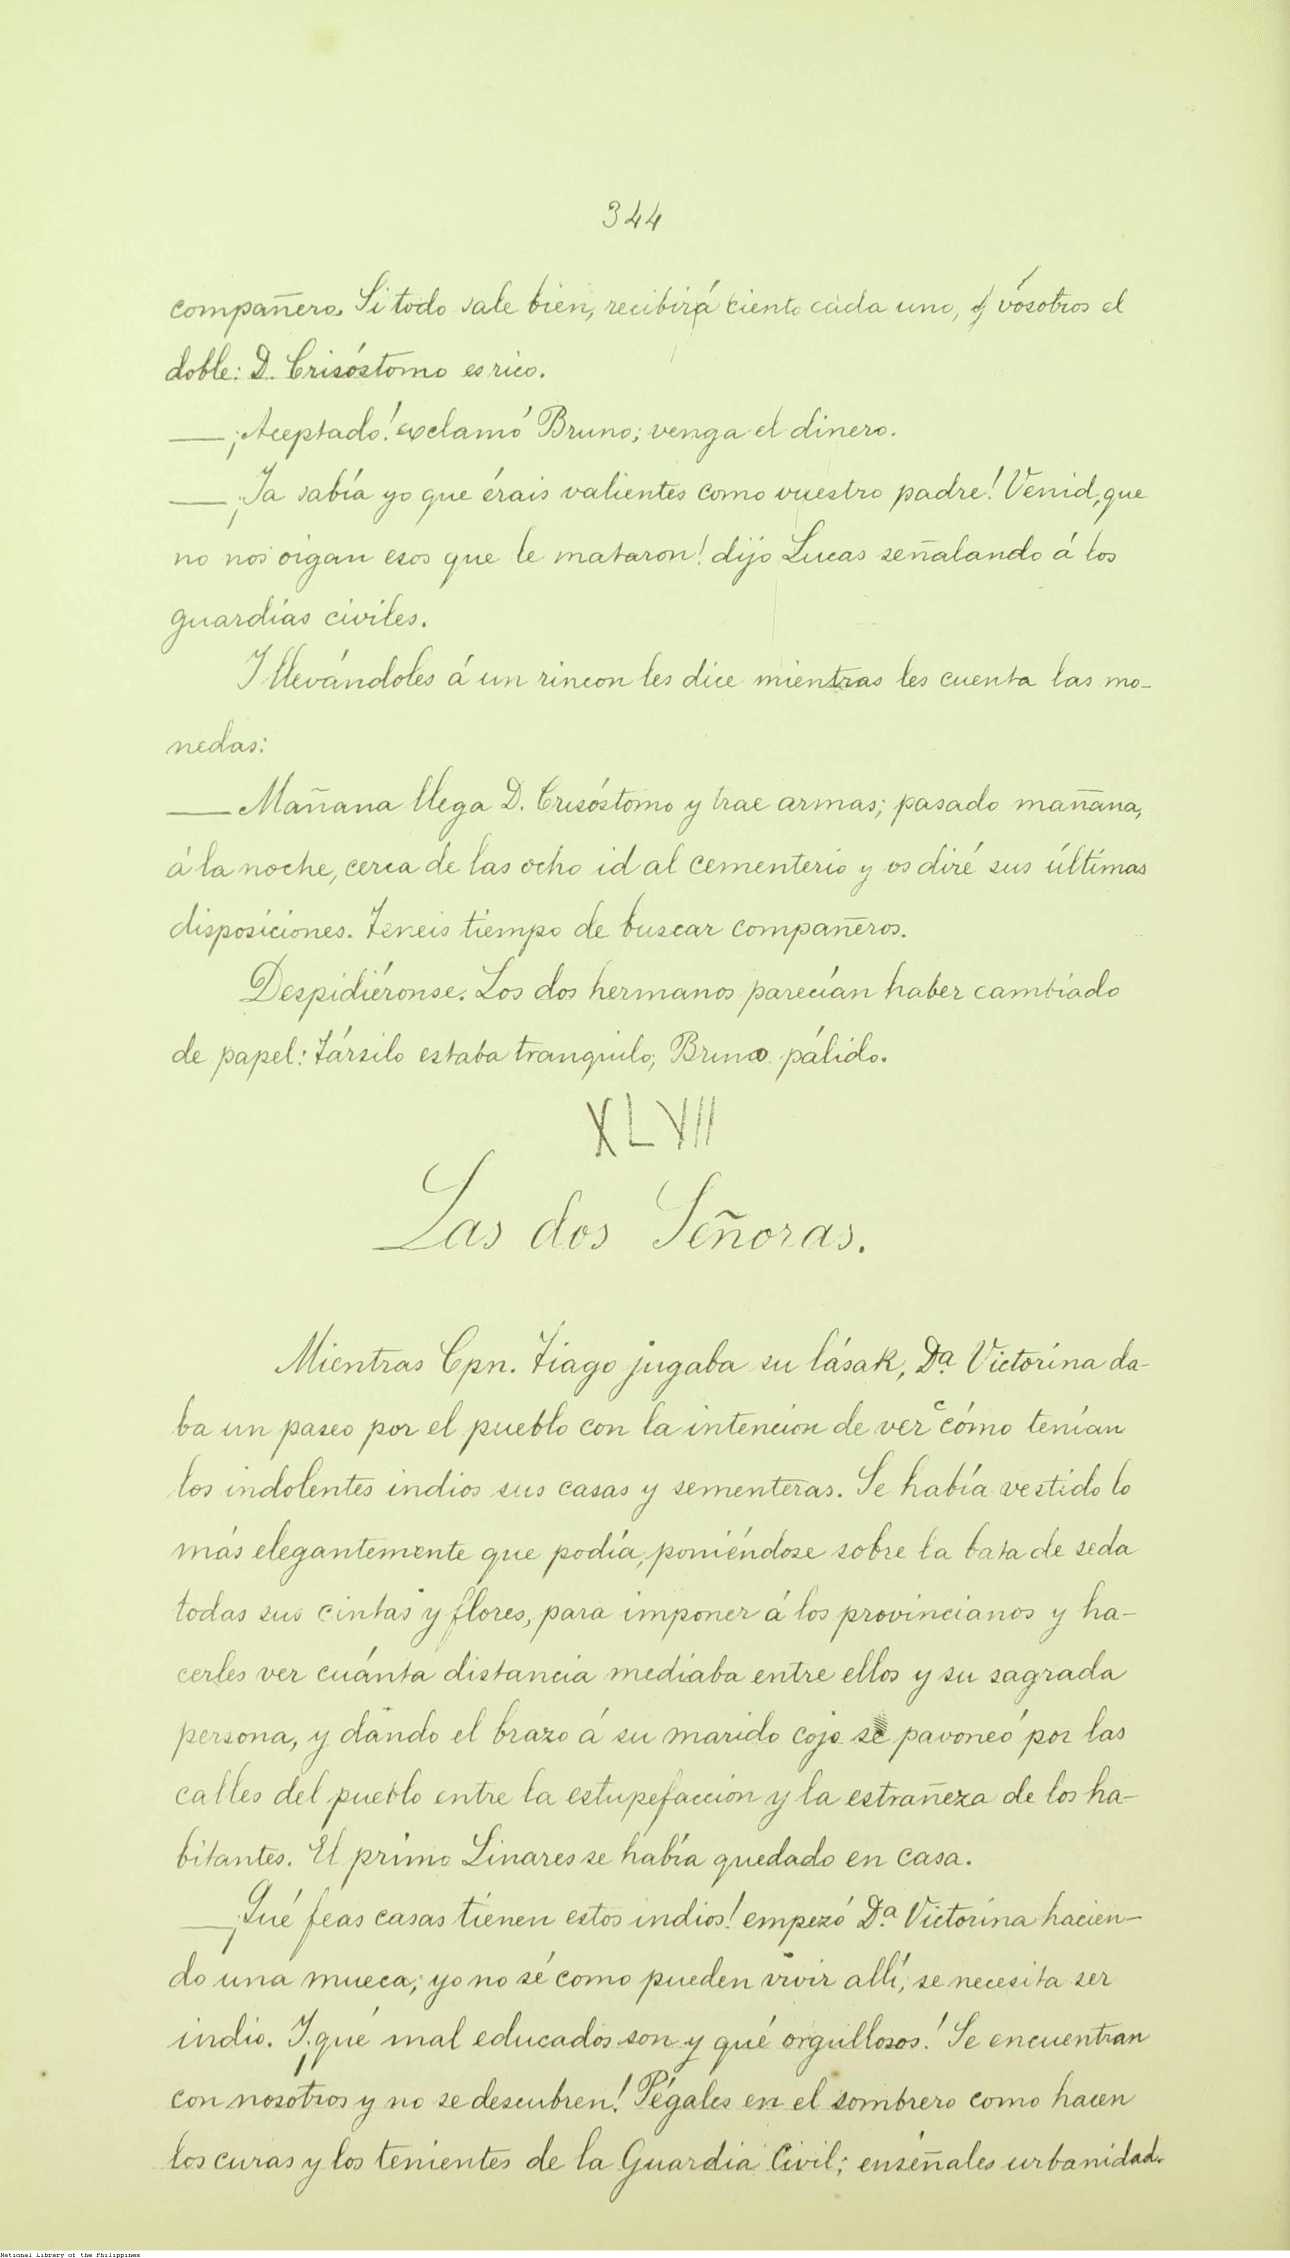 344
compañero. Si todo sale bien, recibirá ciento cada uno, y vosotros el
doble: D. Crisóstomo es rico.
—¡Aceptado! exclamó Bruno; venga el dinero.
—¡Ya sabía yo que érais valientes como vuestro padre! Venid, que
no nos oigan esos que le mataron! dijo Lucas señalando á los
guardias civiles.
Y llevándoles á un rincon les dice mientras les cuenta las mo-
nedas:
—Mañana llega D. Crisóstomo y trae armas; pasado mañana,
á la noche, cerca de las ocho id al cementerio y os diré sus últimas
disposiciones. Teneis tiempo de buscar compañeros.
Despidiéronse. Los dos hermanos parecían haber cambiado
de papel: Társilo estaba tranquilo, Bruno pálido.
XLVII
Las dos Señoras.
Mientras Cpn. Tiago jugaba su lásak, Dª. Victorina da-
ba un paseo por el pueblo con la intencion de ver cómo tenían
los indolentes indios sus casas y sementeras. Se había vestido lo
más elegantemente que podía, poniéndose sobre la bata de seda
todas sus cintas y flores, para imponer á los provincianos y ha-
cerles ver cuánta distancia mediaba entre ellos y su sagrada
persona, y dando el brazo á su marido cojo se pavoneó por las
calles del pueblo entre la estupefaccion y la estrañeza de los ha-
bitantes. El primo Linares se había quedado en casa.
—¡Qué feas casas tienen estos indios! empezó Dª. Victorina hacien-
do una mueca; yo no sé como pueden vivir allí; se necesita ser
indio. Y ¡qué mal educados son y qué orgullosos! Se encuentran
con nosotros y no se descubren! Pégales en el sombrero como hacen
los curas y los tenientes de la Guardia Civil; enséñales urbanidad.
National Library of the Philippines